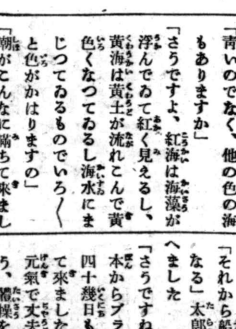 「靑いのでなく、他の色の海
もありますか」
「さうですよ、紅海は海藻が
浮んでゐて紅く見えるし、
黃海は黃土が流れこんで黃
色くなつてゐるし海水にま
じつてゐるものでいろ〱
と色がかはりますの」
「潮がこんなに滿ちて來まし
「それから
なる」太郞
へました
「さうですね
本からブラ
四十幾日も
て來ました
元氣で丈夫
う、體操を